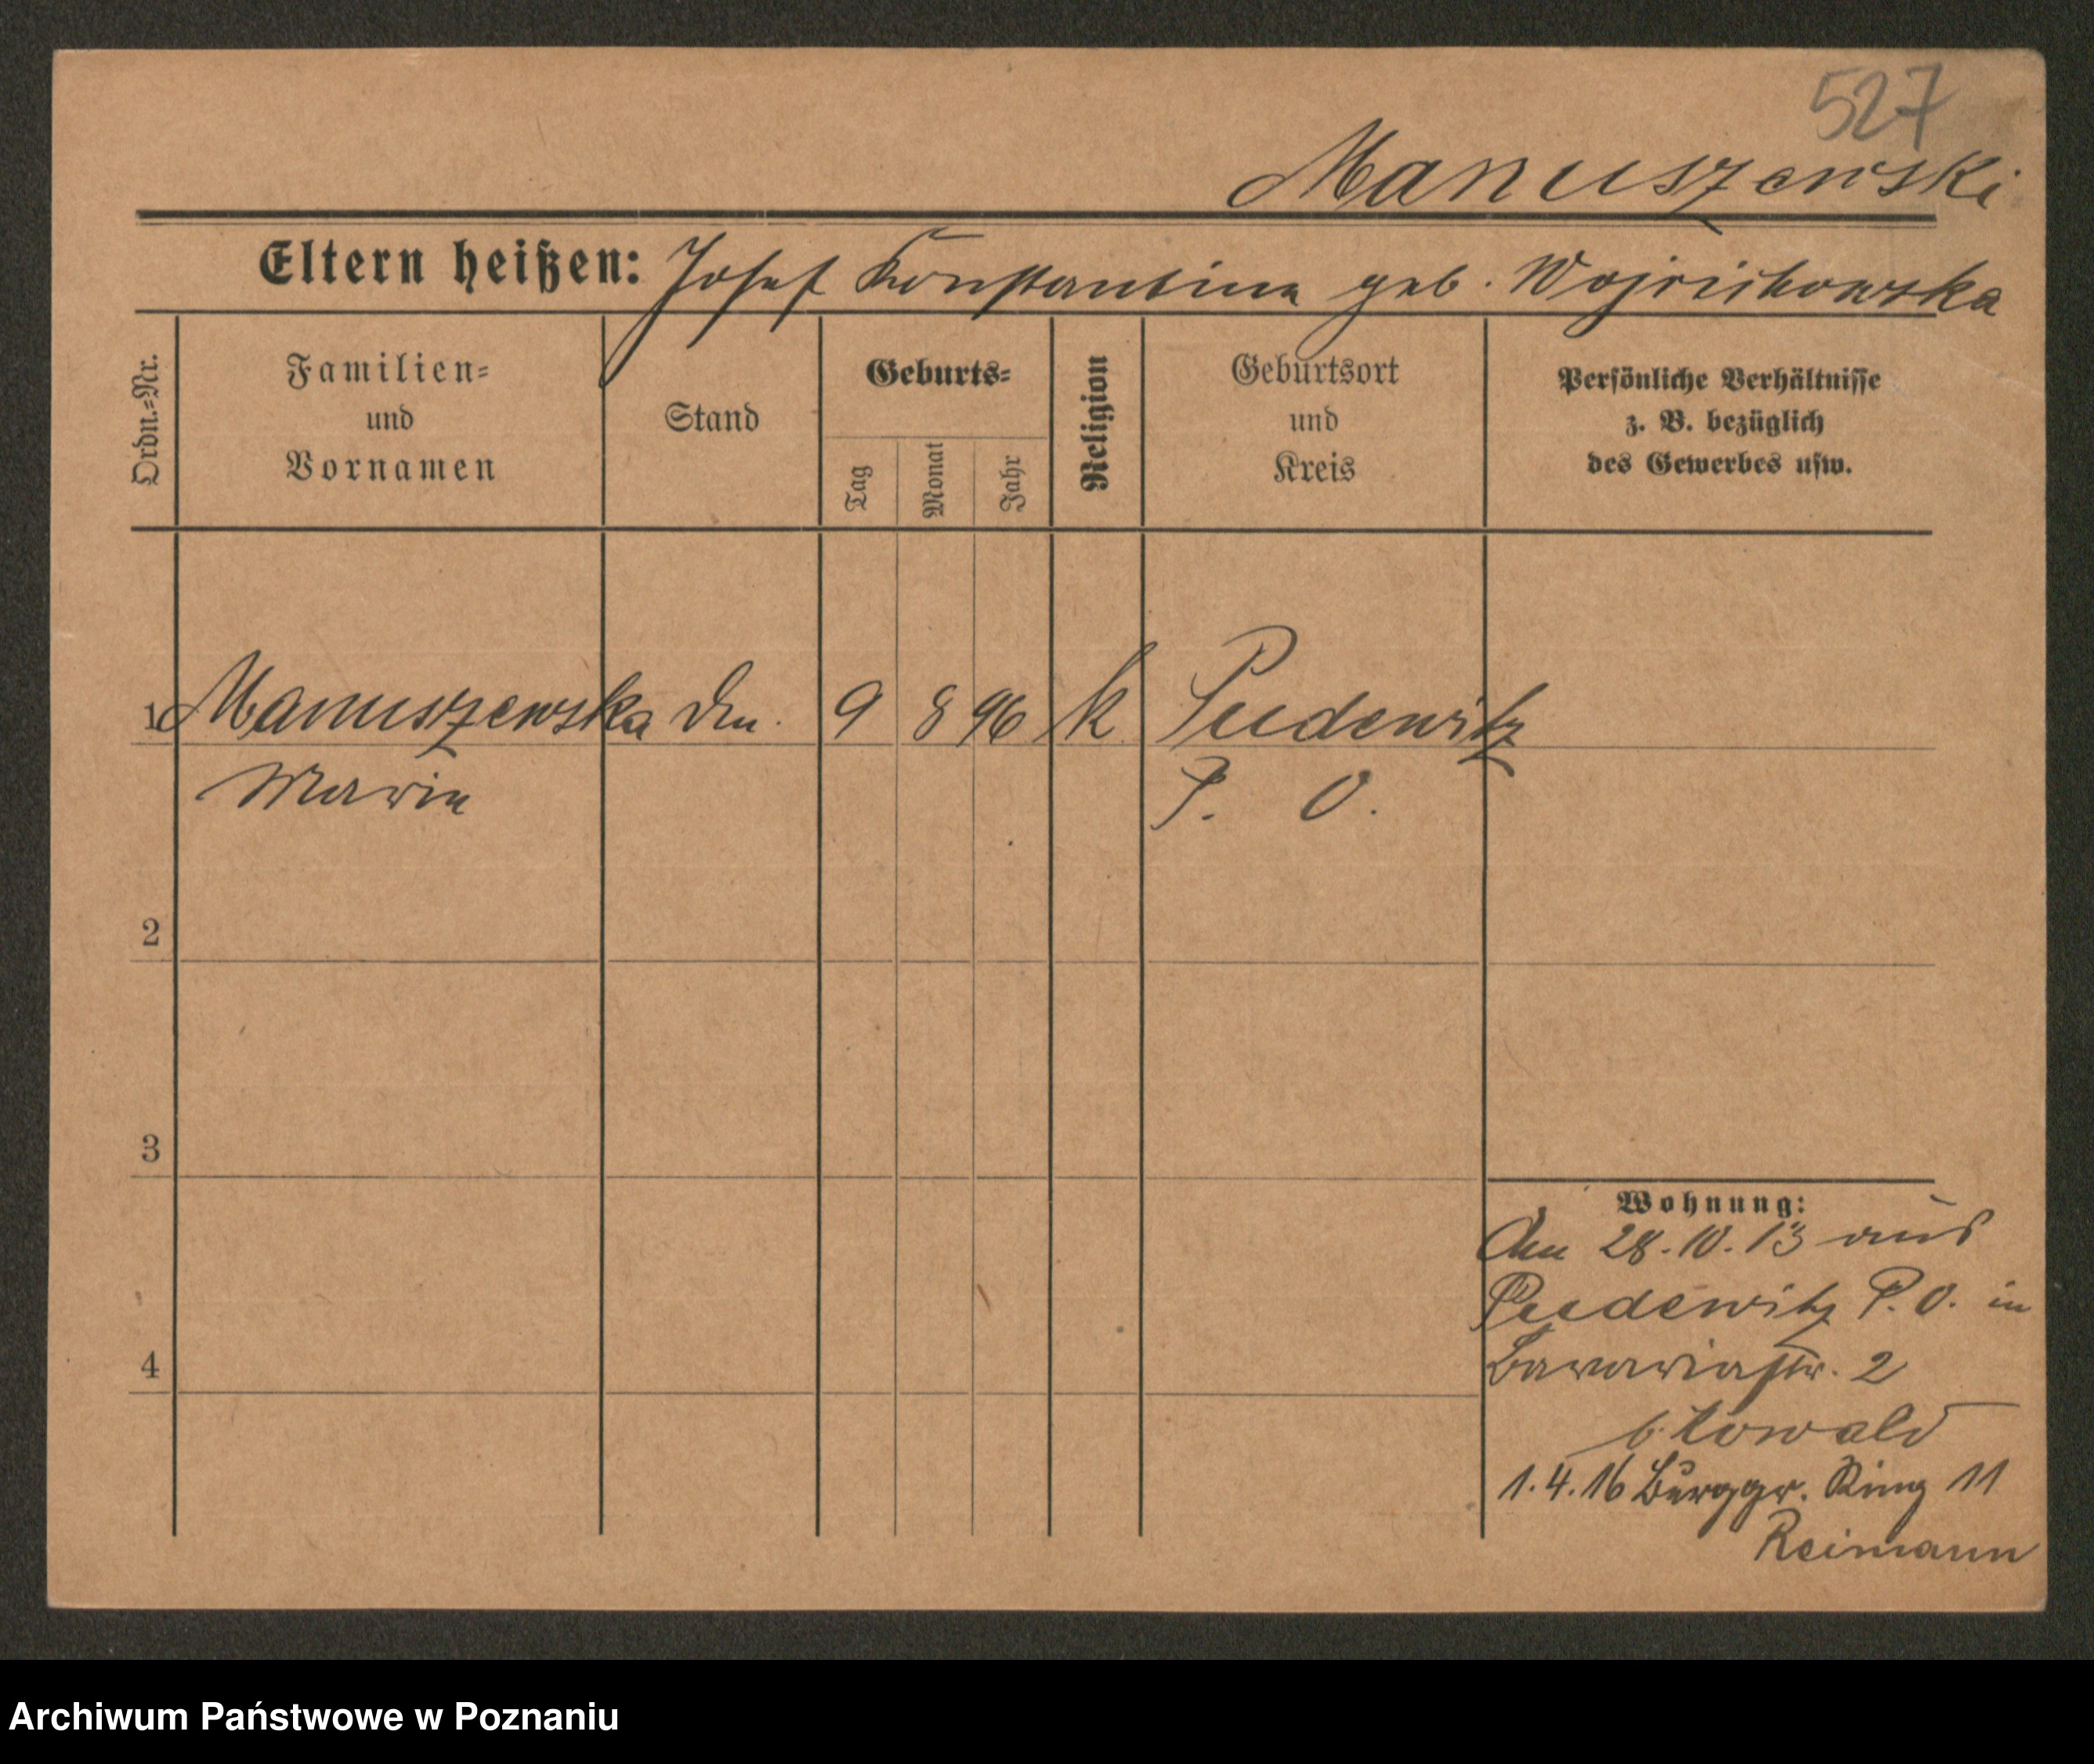 527
Manuszewski
Eltern heißen: Josef Konstantina geb. Wojcichowska
Ordn.=Nr.
Familien=
und
Vornamen
Stand
Geburts=
Tag
Monat
Jahr
Religion
Geburtsort
und
Kreis
Persönliche Verhältnisse
z. B. bezüglich
des Gewerbes usw.
1 Manuszewska 9 8 96 k Pudewitz
Maria P. O.
2
3
4
Wohnung:
28.10.13 aus
Pudewitz P. O. in
Bawariastr. 2
b. Kowald
1.4.16 Burggr. Ring 11
Reimann
Archiwum Państwowe w Poznaniu